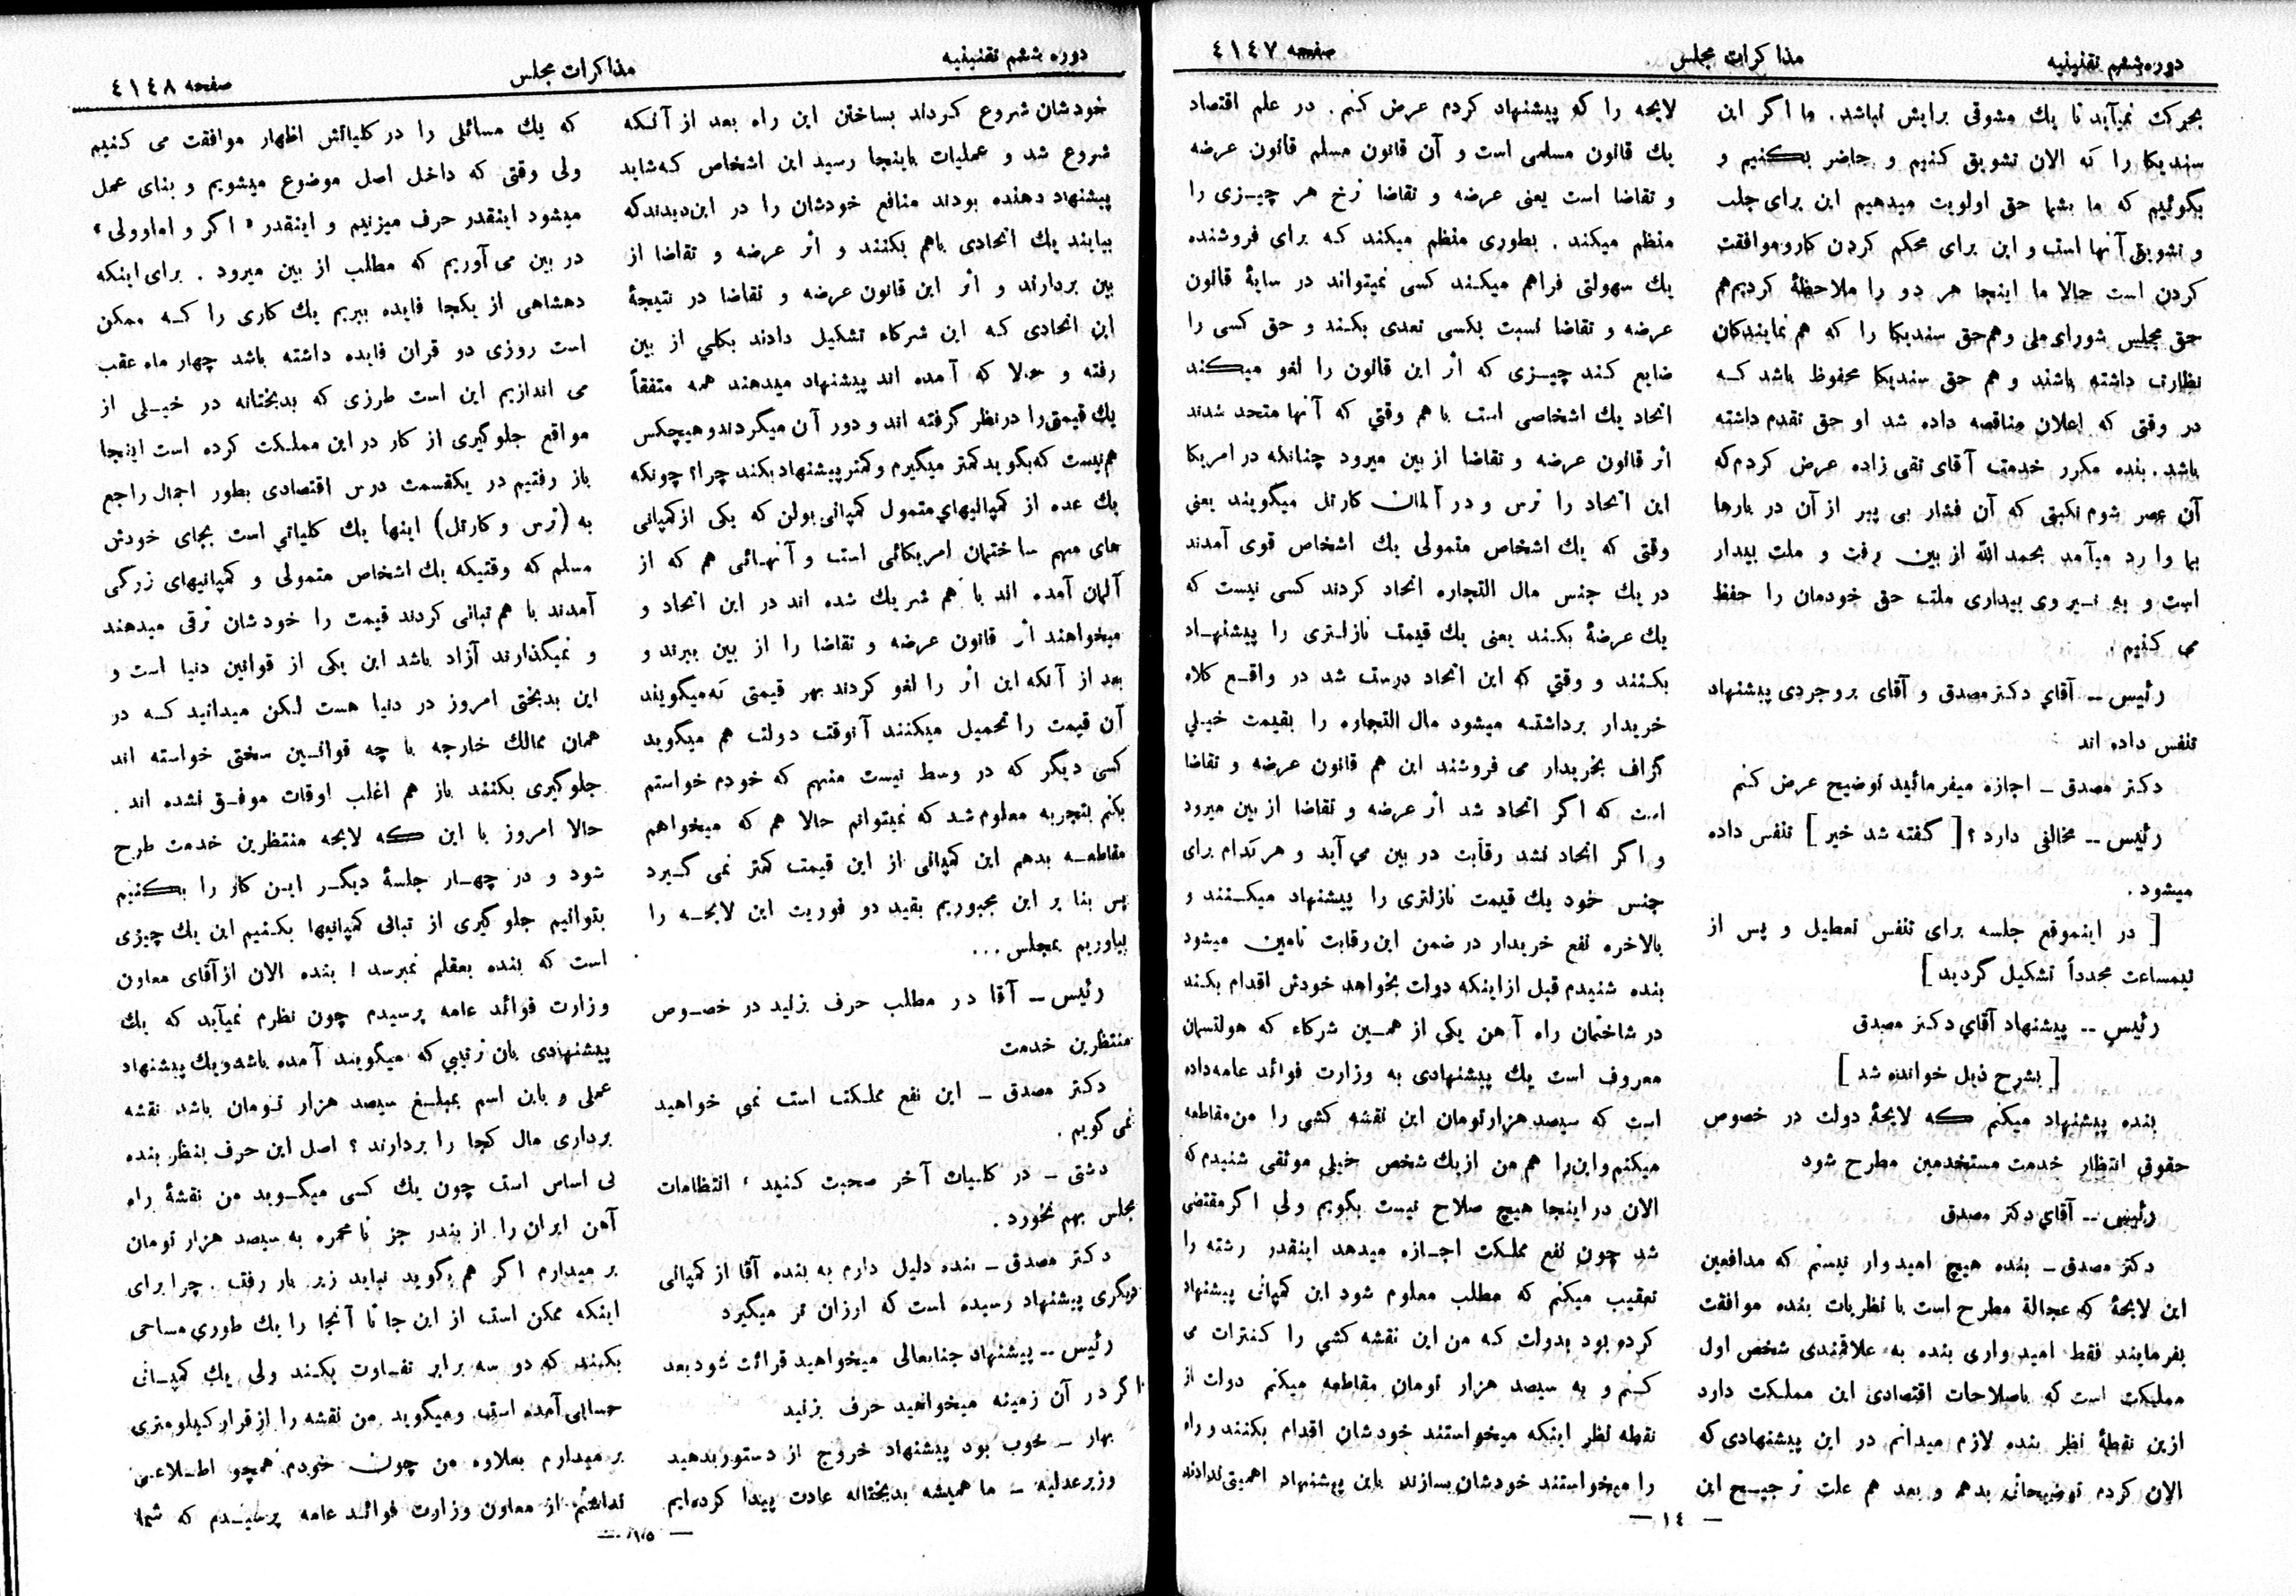 دوره ششم تقنینیه
مذاکرات مجلس
صفحه ٤١٤٧
بحرکت نمیآید تا یك مشوقی برایش نباشد. ما اگر این
سندیکا را که الان تشویق کنیم و حاضر بکنیم و
بگوئیم که ما بشما حق اولویت میدهیم این برای جلب
و تشویق آنها است و این برای محکم کردن کار و موافقت
کردن است حالا ما اینجا هر دو را ملاحظهٔ کردیم هم
حق مجلس شورای ملی و هم حق سندیکا را که هم نمایندگان
نظارت داشته باشند و هم حق سندیکا محفوظ باشد که
در وقتی که اعلان مناقصه داده شد او حق تقدم داشته
باشد. بنده مکرر خدمت آقای تقی زاده عرض کردم که
آن عصر شوم نکبتی که آن فشار بی پیر از آن در بارها
بما وارد میآمد بحمد الله از بین رفت و ملت بیدار
است و به نیروی بیداری ملت حق خودمان را حفظ
می کنیم.
رئیس -- آقای دکتر مصدق و آقای بروجردی پیشنهاد
تنفس داده اند
دکتر مصدق - اجازه میفرمائید توضیح عرض کنم
رئیس -- مخالفی دارد؟ [ گفته شد خیر ] تنفس داده
میشود.
[ در اینموقع جلسه برای تنفس تعطیل و پس از
نیمساعت مجدداً تشکیل گردید ]
رئیس -- پیشنهاد آقای دکتر مصدق
[ بشرح ذیل خوانده شد ]
بنده پیشنهاد میکنم که لایحهٔ دولت در خصوص
حقوق انتظار خدمت مستخدمین مطرح شود
رئیس -- آقای دکتر مصدق
دکتر مصدق - بنده هیچ امیدوار نیستم که مدافعین
این لایحهٔ که عجالة مطرح است با نظریات بنده موافقت
بفرمایند فقط امیدواری بنده به علاقمندی شخص اول
مملکت است که باصلاحات اقتصادی این مملکت دارد
ازین نقطهٔ نظر بنده لازم میدانم در این پیشنهادی که
الان کردم توضیحاتی بدهم و بعد هم علت ترجیح این
لایحه را که پیشنهاد کردم عرض کنم. در علم اقتصاد
یك قانون مسلمی است و آن قانون مسلم قانون عرضه
و تقاضا است یعنی عرضه و تقاضا نرخ هر چیزی را
منظم میکند. بطوری منظم میکند که برای فروشنده
یك سهولتی فراهم میکند کسی نمیتواند در سایهٔ قانون
عرضه و تقاضا نسبت بکسی تعدی بکند و حق کسی را
ضایع کند چیزی که اثر این قانون را لغو میکند
اتحاد یك اشخاصی است با هم وقتی که آنها متحد شدند
اثر قانون عرضه و تقاضا از بین میرود چنانکه در امریکا
این اتحاد را ترس و در آلمان کارتل میگویند یعنی
وقتی که یك اشخاص متمولی یك اشخاص قوی آمدند
در یك جنس مال التجاره اتحاد کردند کسی نیست که
یك عرضهٔ بکند یعنی یك قیمت نازلتری را پیشنهاد
بکنند و وقتی که این اتحاد درست شد در واقع کلاه
خریدار برداشته میشود مال التجاره را بقیمت خیلی
گزاف بخریدار می فروشند این هم قانون عرضه و تقاضا
است که اگر اتحاد شد اثر عرضه و تقاضا از بین میرود
و اگر اتحاد نشد رقابت در بین می آید و هر کدام برای
جنس خود یك قیمت نازلتری را پیشنهاد میکنند و
بالاخره نفع خریدار در ضمن این رقابت تامین میشود
بنده شنیدم قبل از اینکه دولت بخواهد خودش اقدام بکند
در ساختمان راه آهن یکی از همین شرکاء که هولتسمان
معروف است یك پیشنهادی به وزارت فوائد عامه داده
است که سیصد هزار تومان این نقشه کشی را من مقاطعه
میکنم و این را هم من از یك شخص خیلی موثقی شنیدم که
الان در اینجا هیچ صلاح نیست بگویم ولی اگر مقتضی
شد چون نفع مملکت اجازه میدهد اینقدر رشته را
تعقیب میکنم که مطلب معلوم شود این کمپانی پیشنهاد
کرده بود بدولت که من این نقشه کشی را کنترات می
کنم و به سیصد هزار تومان مقاطعه میکنم دولت از
نقطه نظر اینکه میخواستند خودشان اقدام بکنند و راه
را میخواستند خودشان بسازند باین پیشنهاد اهمیتی ندادند
— ١٤ —
دوره ششم تقنینیه
مذاکرات مجلس
صفحه ٤١٤٨
خودشان شروع کردند بساختن این راه بعد از آنکه
شروع شد و عملیات باینجا رسید این اشخاص که شاید
پیشنهاد دهنده بودند منافع خودشان را در این دیدند که
بیایند یك اتحادی باهم بکنند و اثر عرضه و تقاضا از
بین بردارند و اثر این قانون عرضه و تقاضا در نتیجهٔ
این اتحادی که این شرکاء تشکیل دادند بکلی از بین
رفته و حالا که آمده اند پیشنهاد میدهند همه متفقاً
یك قیمتی را در نظر گرفته اند و دور آن میگردند و هیچکس
هم نیست که بگوید کمتر میگیرم و کمتر پیشنهاد بکند چرا؟ چونکه
یك عده از کمپانیهای متمول کمپانی یولن که یکی از کمپانی
های مهم ساختمان امریکائی است و آنهائی هم که از
آلمان آمده اند با هم شریك شده اند در این اتحاد و
میخواهند اثر قانون عرضه و تقاضا را از بین ببرند و
بعد از آنکه این اثر را لغو کردند بهر قیمتی که میگویند
آن قیمت را تحمیل میکنند آنوقت دولت هم میگوید
کسی دیگر که در وسط نیست منهم که خودم خواستم
بکنم بتجربه معلوم شد که نمیتوانم حالا هم که میخواهم
مقاطعه بدهم این کمپانی از این قیمت کمتر نمی گیرد
پس بنا بر این مجبوریم بقید دو فوریت این لایحه را
بیاوریم بمجلس...
رئیس -- آقا در مطلب حرف بزنید در خصوص
منتظرین خدمت
دکتر مصدق - این نفع مملکت است نمی خواهید
نمی گویم.
دشتی - در کلیات آخر صحبت کنید، انتظامات
مجلس بهم نخورد.
دکتر مصدق - بنده دلیل دارم به بنده آقا از کمپانی
دیگری پیشنهاد رسیده است که ارزان تر میگیرد
رئیس -- پیشنهاد جنابعالی میخواهید قرائت شود بعد
اگر در آن زمینه میخواهید حرف بزنید
بهار - خوب بود پیشنهاد خروج از دستور بدهید
وزیر عدلیه - ما همیشه بدبختانه عادت پیدا کرده ایم
که یك مسائلی را در کلیاتش اظهار موافقت می کنیم
ولی وقتی که داخل اصل موضوع میشویم و بنای عمل
میشود اینقدر حرف میزنیم و اینقدر « اگر و اما و ولی »
در بین می آوریم که مطلب از بین میرود. برای اینکه
دهشاهی از یکجا فایده ببریم یك کاری را که ممکن
است روزی دو قران فایده داشته باشد چهار ماه عقب
می اندازیم این است طرزی که بدبختانه در خیلی از
مواقع جلوگیری از کار در این مملکت کرده است اینجا
باز رفتیم در یکقسمت درس اقتصادی بطور اجمال راجع
به (ترس و کارتل) اینها یك کلیاتی است بجای خودش
مسلم که وقتیکه یك اشخاص متمولی و کمپانیهای زرگی
آمدند با هم تبانی کردند قیمت را خودشان ترقی میدهند
و نمیگذارند آزاد باشد این یکی از قوانین دنیا است و
این بدبختی امروز در دنیا هست لکن میدانید که در
همان ممالك خارجه با چه قوانین سختی خواسته اند
جلوگیری بکنند باز هم اغلب اوقات موفق نشده اند.
حالا امروز با این که لایحه منتظرین خدمت طرح
شود و در چهار جلسهٔ دیگر این کار را بکنیم
بتوانیم جلوگیری از تبانی کمپانیها بکنیم این یك چیزی
است که بنده بعقلم نمیرسد! بنده الان از آقای معاون
وزارت فوائد عامه پرسیدم چون نظرم نمیآید که یك
پیشنهادی بان ترتیبی که میگویند آمده باشد و یك پیشنهاد
عملی و باین اسم بمبلغ سیصد هزار تومان باشد نقشه
برداری مال کجا را بردارند؟ اصل این حرف بنظر بنده
بی اساس است چون یك کسی میگوید من نقشهٔ راه
آهن ایران را از بندر جز تا محمره به سیصد هزار تومان
بر میدارم اگر هم بگوید نباید زیر بار رفت. چرا برای
اینکه ممکن است از این جا تا آنجا را یك طوری مساحی
بکنند که دو سه برابر تفاوت بکند ولی یك کمپانی
حسابی آمده است و میگوید من نقشه را از قرار کیلومتری
بر میدارم بعلاوه من چون خودم همچو اطلاعی
نداشتم از معاون وزارت فوائد عامه پرسیدم که شما
— ١٥ —